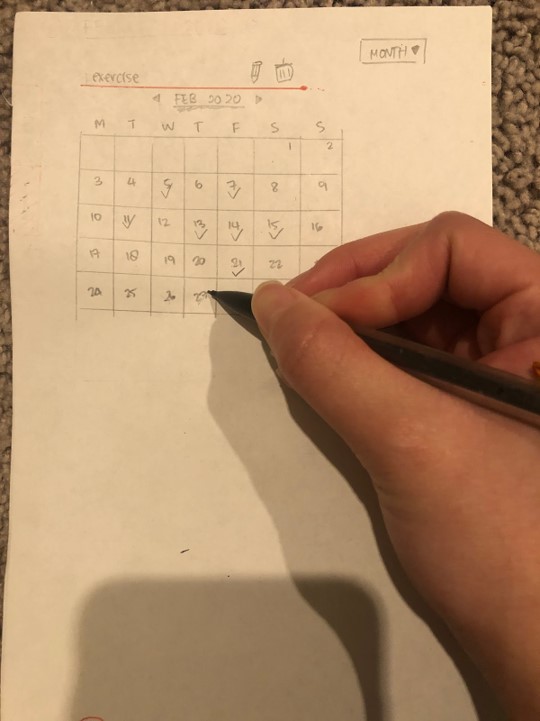 MONTH
exercise
FEB 2020
M T W T F S S
1 2
3 4 5 6 7 8 9
10 11 12 13 14 15 16
17 18 19 20 21 22
25 26 27